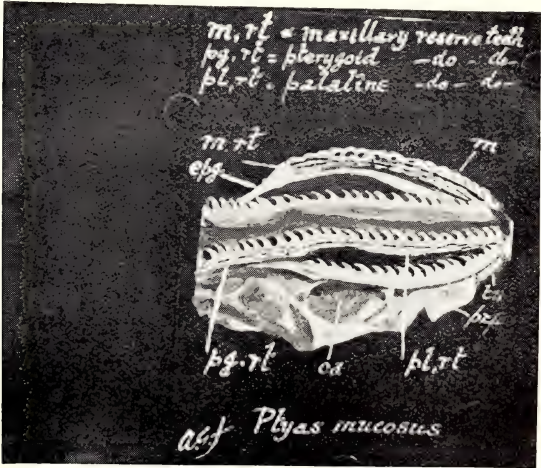 m, rt = maxillary reserve teeth
pg, rt = pterygoid -do- do-
pt, rt = palatine -do- do-
m rt
m
epg
prf
pg. rt
ca
pt, rt
Ptyas mucosus